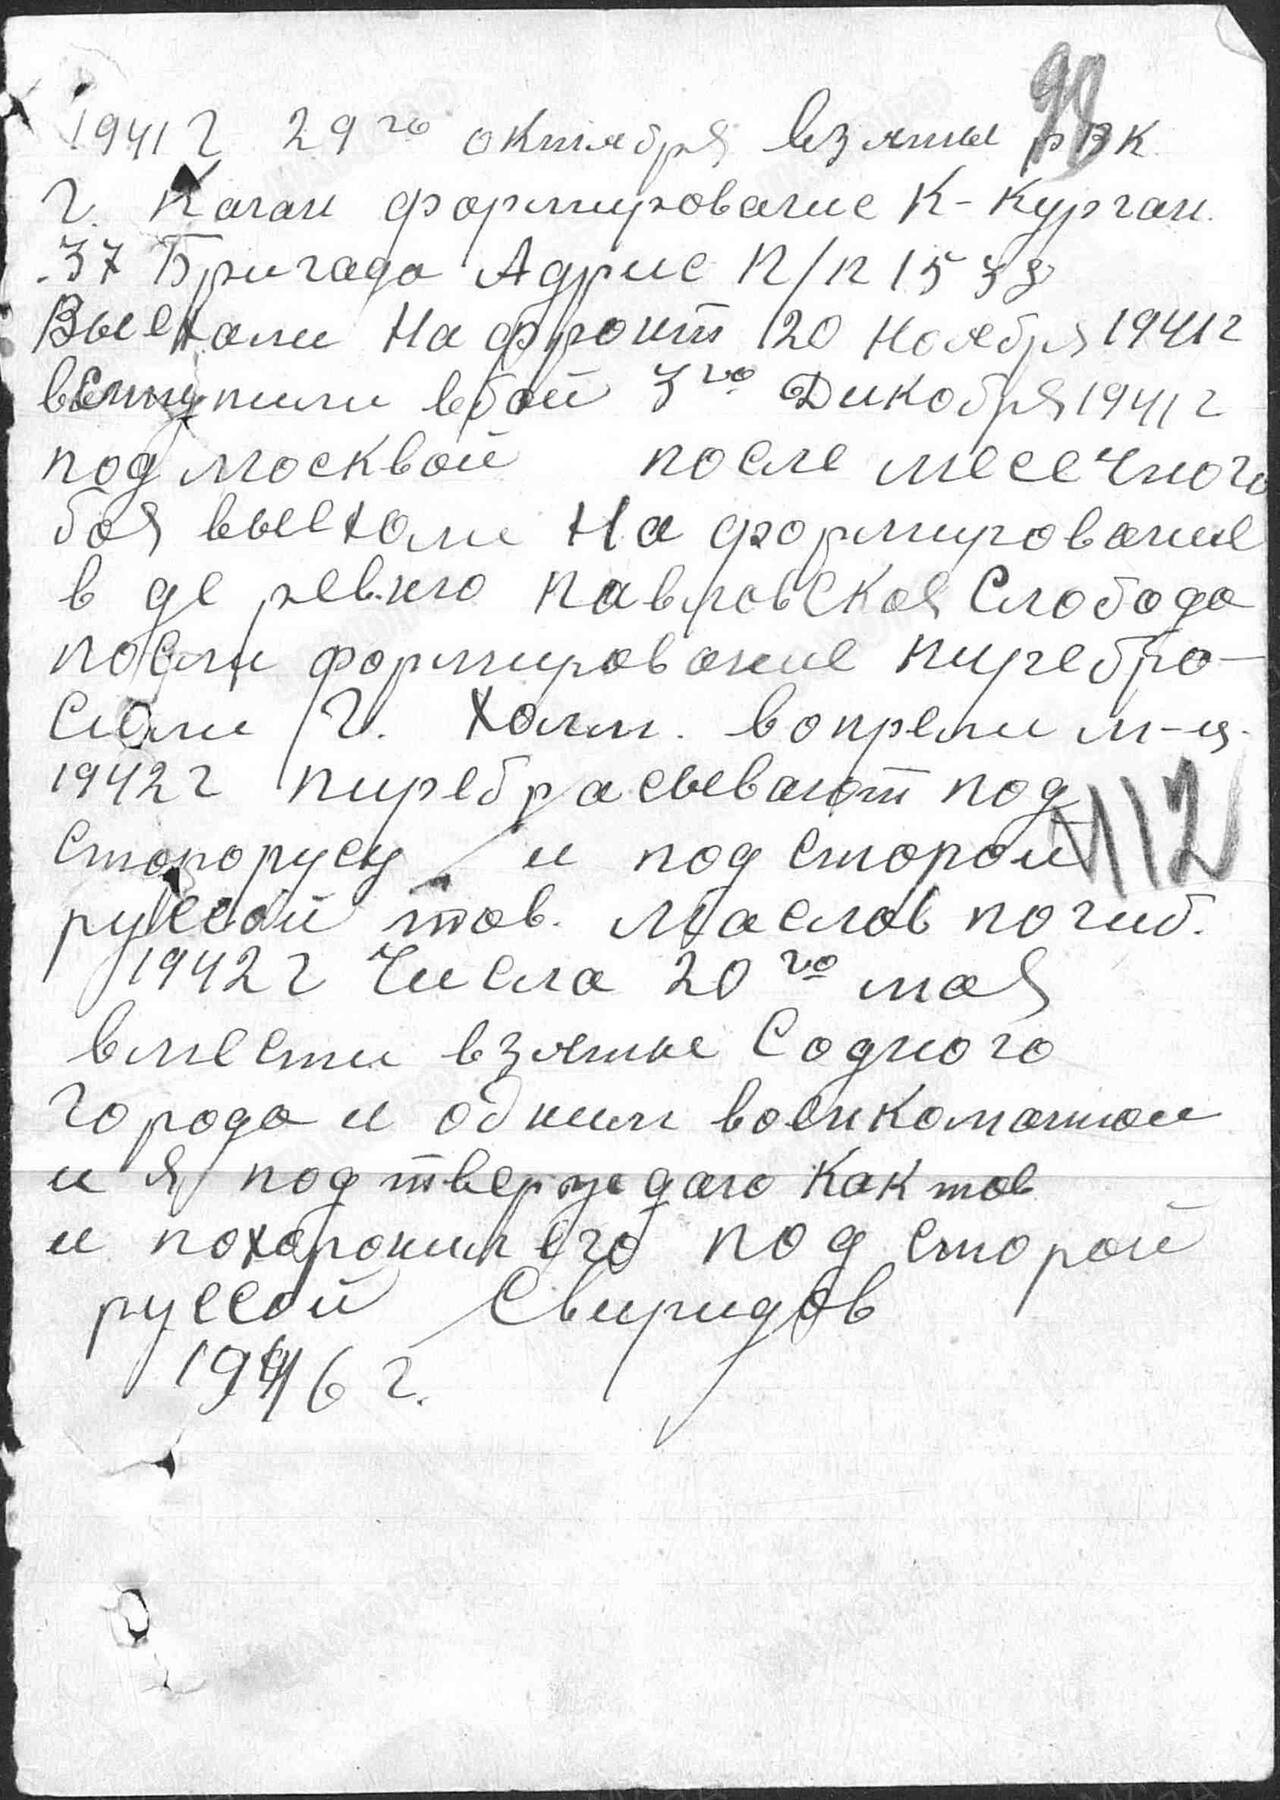 98
1941 г 29го октября взяты РВК
г. Каган формирование К-Курган.
37 Бригада Адрис п/п 1533
Выехали на фронт 20 ноября 1941 г
вступили в бой 3го Дикобря 1941 г
под москвой после месечного
боя выехали на формирование
в деревню павловская Слобода
посли формирование пиребро-
сили г. Холм. в апрели м-ц.
1942 г пиребрасывают под
старорусу и под старой
112
руссой тов. Маслов погиб.
1942 г Числа 20го мая
вмести взятые С одного
города и одним военкоматом
и я подтверждаю как тов
и похоронил его под старой
руссой Свиридов
1946 г.